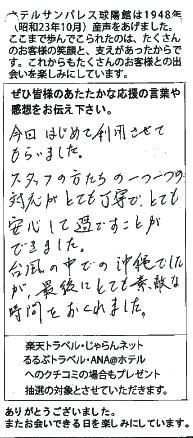 ホテルサンパレス球陽館は1948年
（昭和23年10月）産声をあげました。
ここまで歩んでこられたのは、たくさん
のお客様の笑顔と、支えがあったからで
す。これからもたくさんのお客様との出
会いを楽しみにしています。
ぜひ皆様のあたたかな応援の言葉や
感想をお伝え下さい。
今回はじめて利用させて
もらいました。
スタッフの方たちの一つ一つの
対応がとても丁寧で、とても
安心して過ごすことが
できました。
台風の中での沖縄でした
が、最後にとても素敵な
時間をおくれました。
楽天トラベル・じゃらんネット
るるぶトラベル・ANA@ホテル
へのクチコミの場合もプレゼント
抽選の対象とさせていただきます。
ありがとうございました。
またお会いできる日を楽しみにしています。